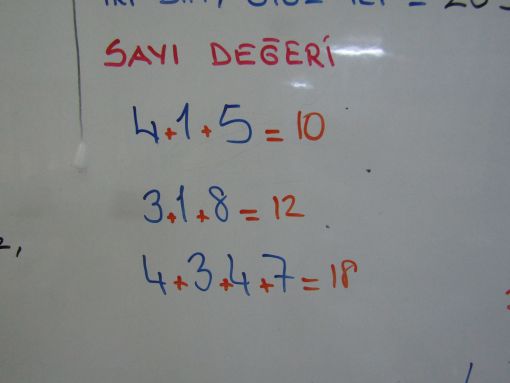 SAYI DEĞERİ
4+1+5=10
3+1+8=12
4+3+4+7=18